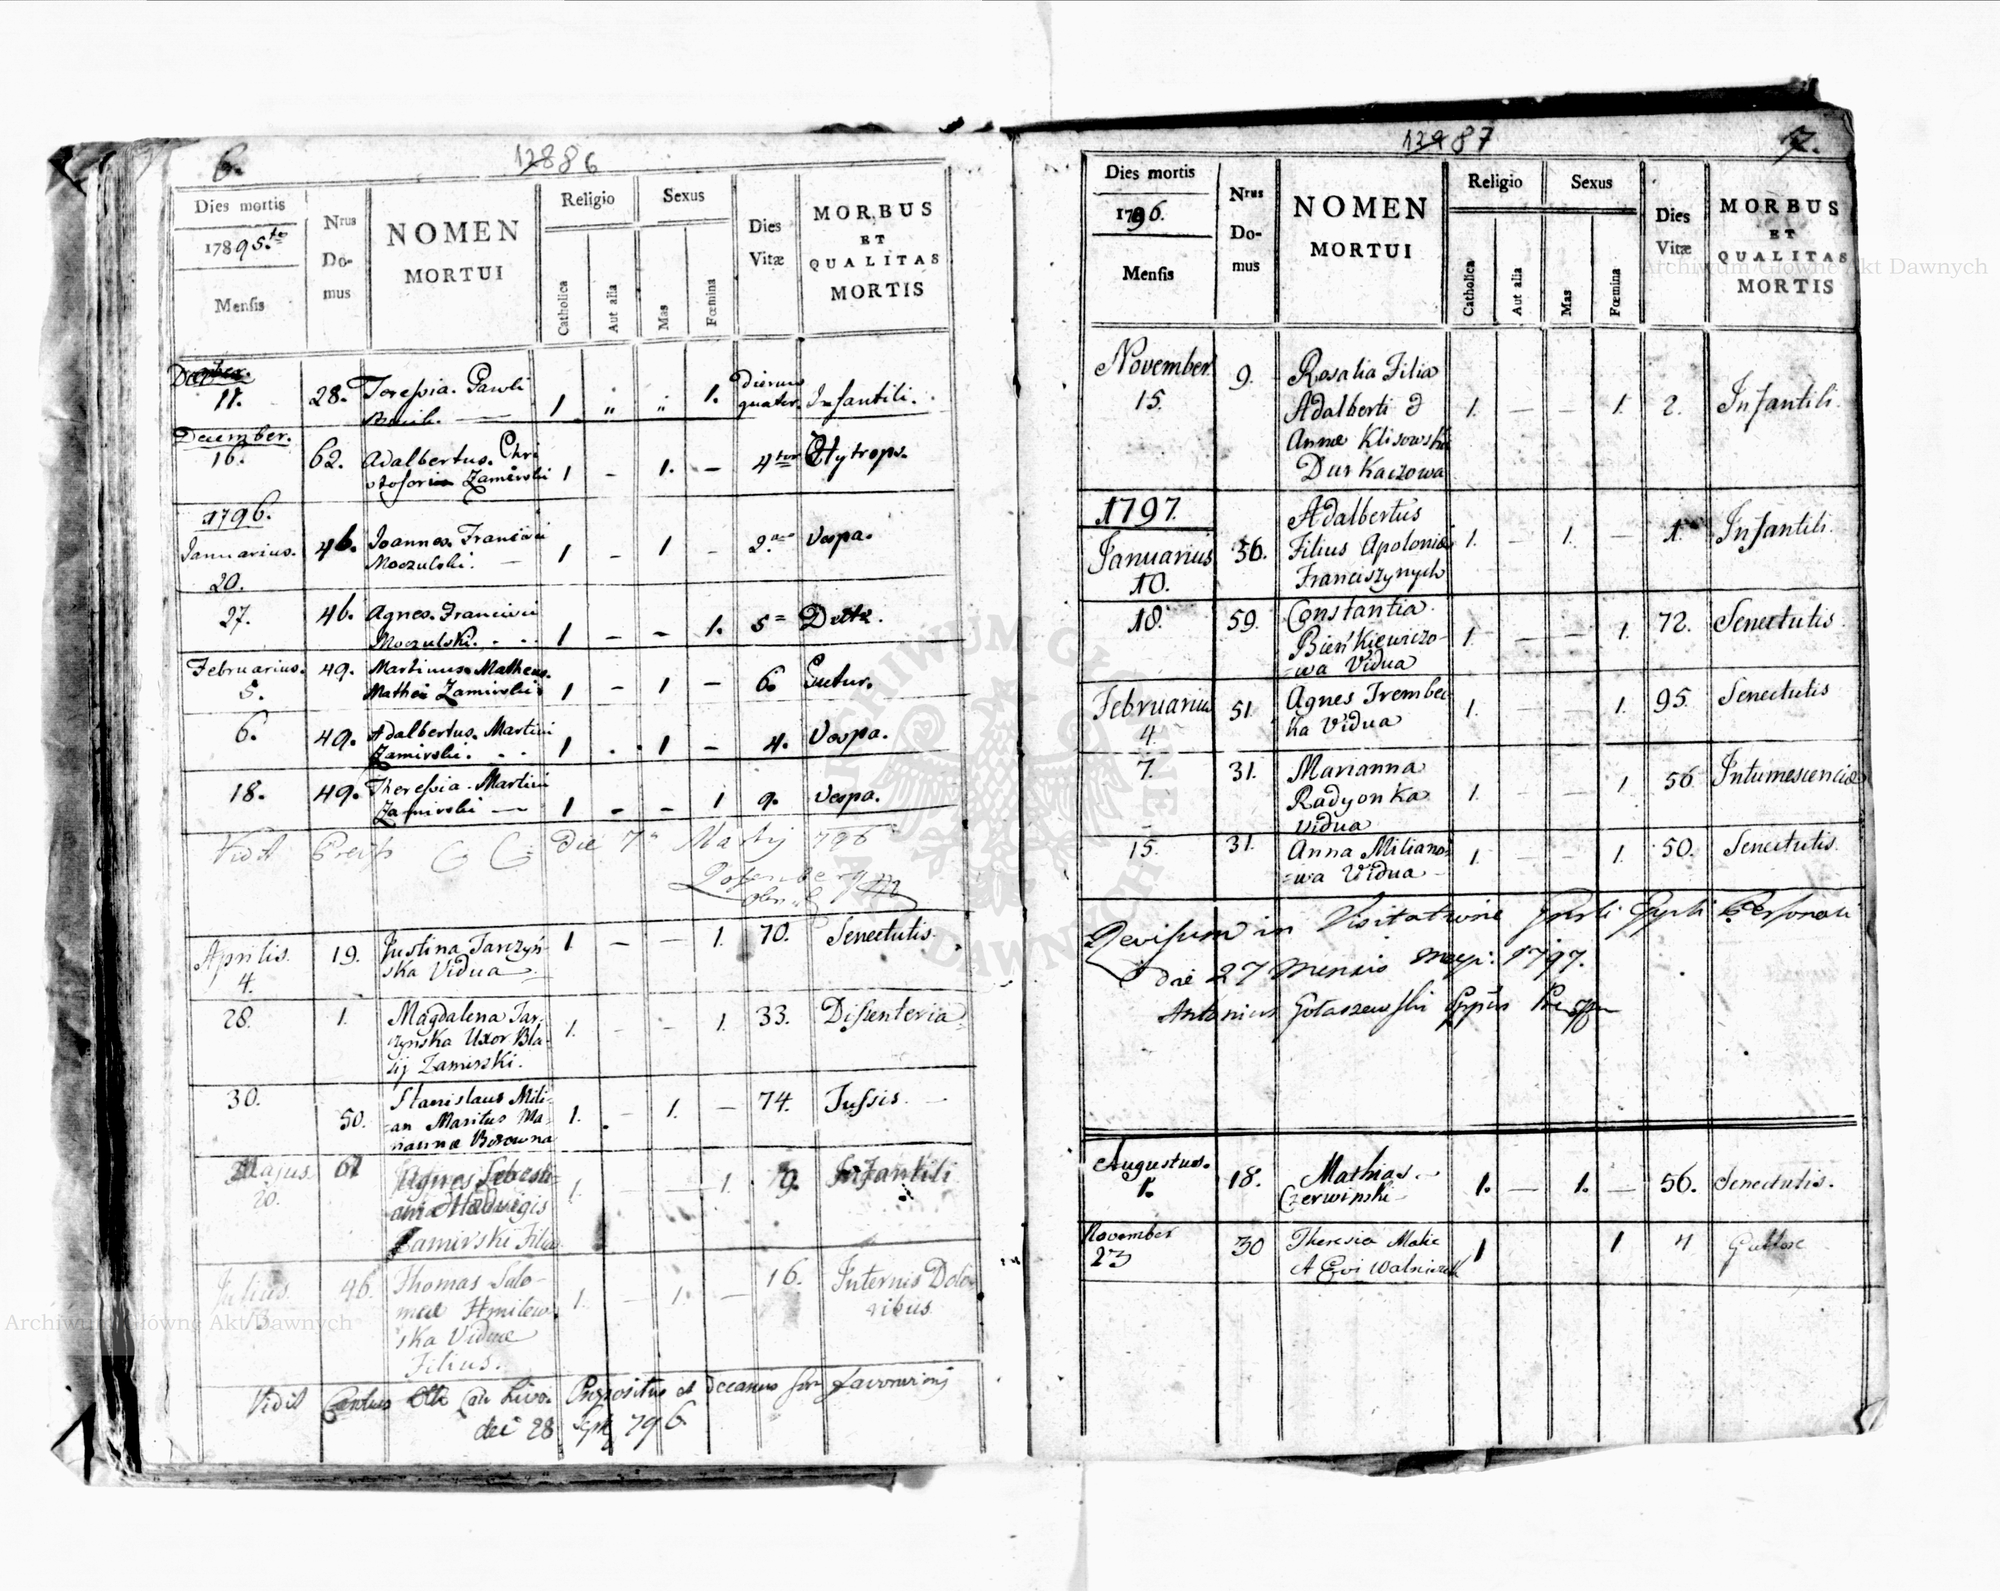 6.
12886
Dies mortis
1789 5.to
Mensis
Nrus
Do-
mus
NOMEN
MORTUI
Religio
Catholica
Aut alia
Sexus
Mas
Fœmina
Dies
Vitæ
MORBUS
ET
QUALITAS
MORTIS
11. 28. Teressia. Pawli
1 „ „ 1. dierum
quatuor. Infantili.
December.
16. 62. Adalbertus. Chri
stofori Zamirski 1 - 1. - 4 Hytrops.
1796.
Januarius. 46. Joannes. Francisci
Moczulski. 1 - 1 - 2. Vespa.
20.
27. 46. Agnes. Francisci
Moczulski. 1 - - 1. 5 Detto.
Februarius. 49. Martinus. Matheus.
5. Mathei Zamirski 1 - 1 - 6. Gutur.
6. 49. Adalbertus. Martini
Zamirski. 1 . 1 - 4. Vespa.
18. 49. Theressia. Martini
Zamirski 1 - - 1 9. Vespa.
Vidit die 7 Martij 796
Aprilis. 19. Justina Tarczyń-
4. ska Vidua 1. - - 1. 70. Senectutis.
28. 1. Magdalena Tar-
czynska Uxor Bla-
sij Zamirski. 1. - - 1. 33. Dissenteria.
30. 50. Stanislaus Mili-
an Maritus Ma-
rianna Borowna 1. - 1. - 74. Tussis.
Majus. 61 Agnes Sebasti-
20. ani Hedwigis
Zamirski Filia 1. - - 1. 9. Infantili
Julius. 46. Thomas Salo-
meæ Hmilew-
ska Viduæ
Filius. 1. - 1. - 16. Internis Dolo-
ribus
Vidit Præpositus et Decanus
die 28 796
12987
7.
Dies mortis
1796.
Mensis
Nrus
Do-
mus
NOMEN
MORTUI
Religio
Catholica
Aut alia
Sexus
Mas
Fœmina
Dies
Vitæ
MORBUS
ET
QUALITAS
MORTIS
November 9. Rosalia Filia
15. Adalberti &
Annæ Klisowska
Durkaczowa 1. - - 1. 2. Infantili.
1797.
Januarius 36. Adalbertus
10. Filius Apoloniæ
Franciszynych 1. - 1. - 1. Infantili.
18. 59. Constantia
Bieńkiewiczo-
wa Vidua 1. - - 1. 72. Senectutis.
Februarius 51. Agnes Trembec
4. ka Vidua 1. - - 1. 95. Senectutis
7. 31. Marianna
Radyonka
vidua 1. - - 1 56. Intumescenciæ
15. 31. Anna Miliano-
wa Vidua 1. - - 1. 50. Senectutis.
Revisum in Visitatione Personali
die 27 Mensis Maji: 1797.
Antonius Gołaszewski
Augustus. 18. Mathias.
1. Czerwinski 1. - 1. - 56. Senectutis.
November 30 Theresia
23 1 1 4 Guttore
Archiwum Główne Akt Dawnych
Archiwum Główne Akt Dawnych
ARCHIWUM GŁÓWNE AKT DAWNYCH